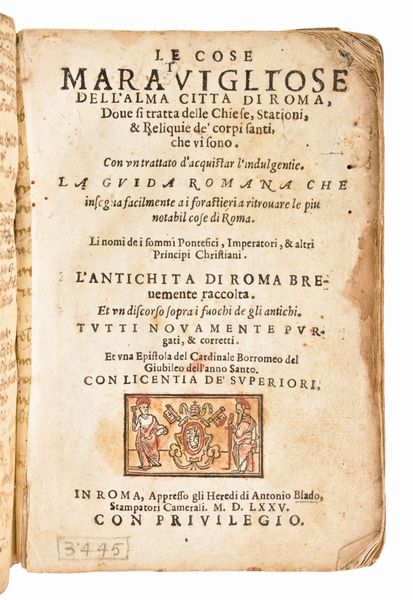 LE COSE
MARAVIGLIOSE
DELL'ALMA CITTA DI ROMA,
Doue si tratta delle Chiese, Stationi,
& Reliquie de' corpi santi,
che vi sono.
Con vn trattato d'acquistar l'indulgentie.
LA GVIDA ROMANA CHE
insegna facilmente a i forastieri a ritrouare le piu
notabil cose di Roma.
Li nomi de i sommi Pontefici, Imperatori, & altri
Principi Christiani.
L'ANTICHITA DI ROMA BRE-
uemente raccolta.
Et vn discorso sopra i fuochi de gli antichi.
TVTTI NOVAMENTE PVR-
gati, & corretti.
Et vna Epistola del Cardinale Borromeo del
Giubileo dell'anno Santo.
CON LICENTIA DE' SVPERIORI.
IN ROMA, Appresso gli Heredi di Antonio Blado,
Stampatori Camerali. M. D. LXXV.
CON PRIVILEGIO.
3445